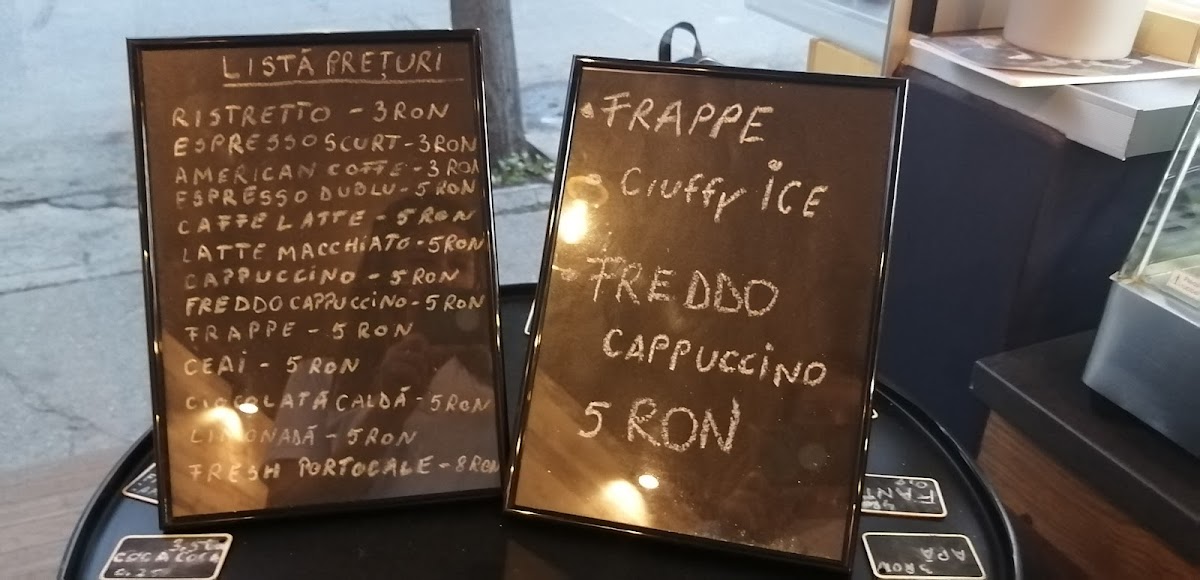 LISTĂ PREȚURI
RISTRETTO - 3 RON
ESPRESSO SCURT - 3 RON
AMERICAN COFFE - 3 RON
ESPRESSO DUBLU - 5 RON
CAFFE LATTE - 5 RON
LATTE MACCHIATO - 5 RON
CAPPUCCINO - 5 RON
FREDDO CAPPUCCINO - 5 RON
FRAPPE - 5 RON
CEAI - 5 RON
CIOCOLATĂ CALDĂ - 5 RON
LIMONADĂ - 5 RON
FRESH PORTOCALE - 8 RON
• FRAPPE
• Ciuffy iCE
• FREDDO
CAPPUCCINO
5 RON
COCA COLA
0,25
FANT
APĂ
3 RON